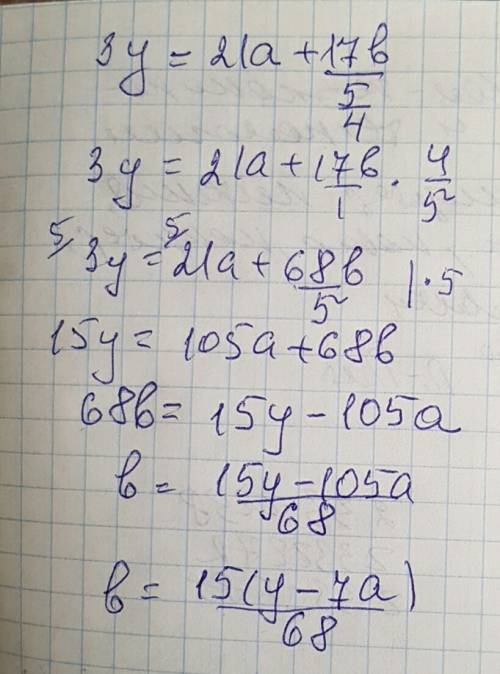 3y = 21a + 17b/(5/4)
3y = 21a + 17b/1 · 4/5
5/ 3y = 5/ 21a + 68b/5 | · 5
15y = 105a + 68b
68b = 15y - 105a
b = (15y - 105a)/68
b = 15(y - 7a)/68